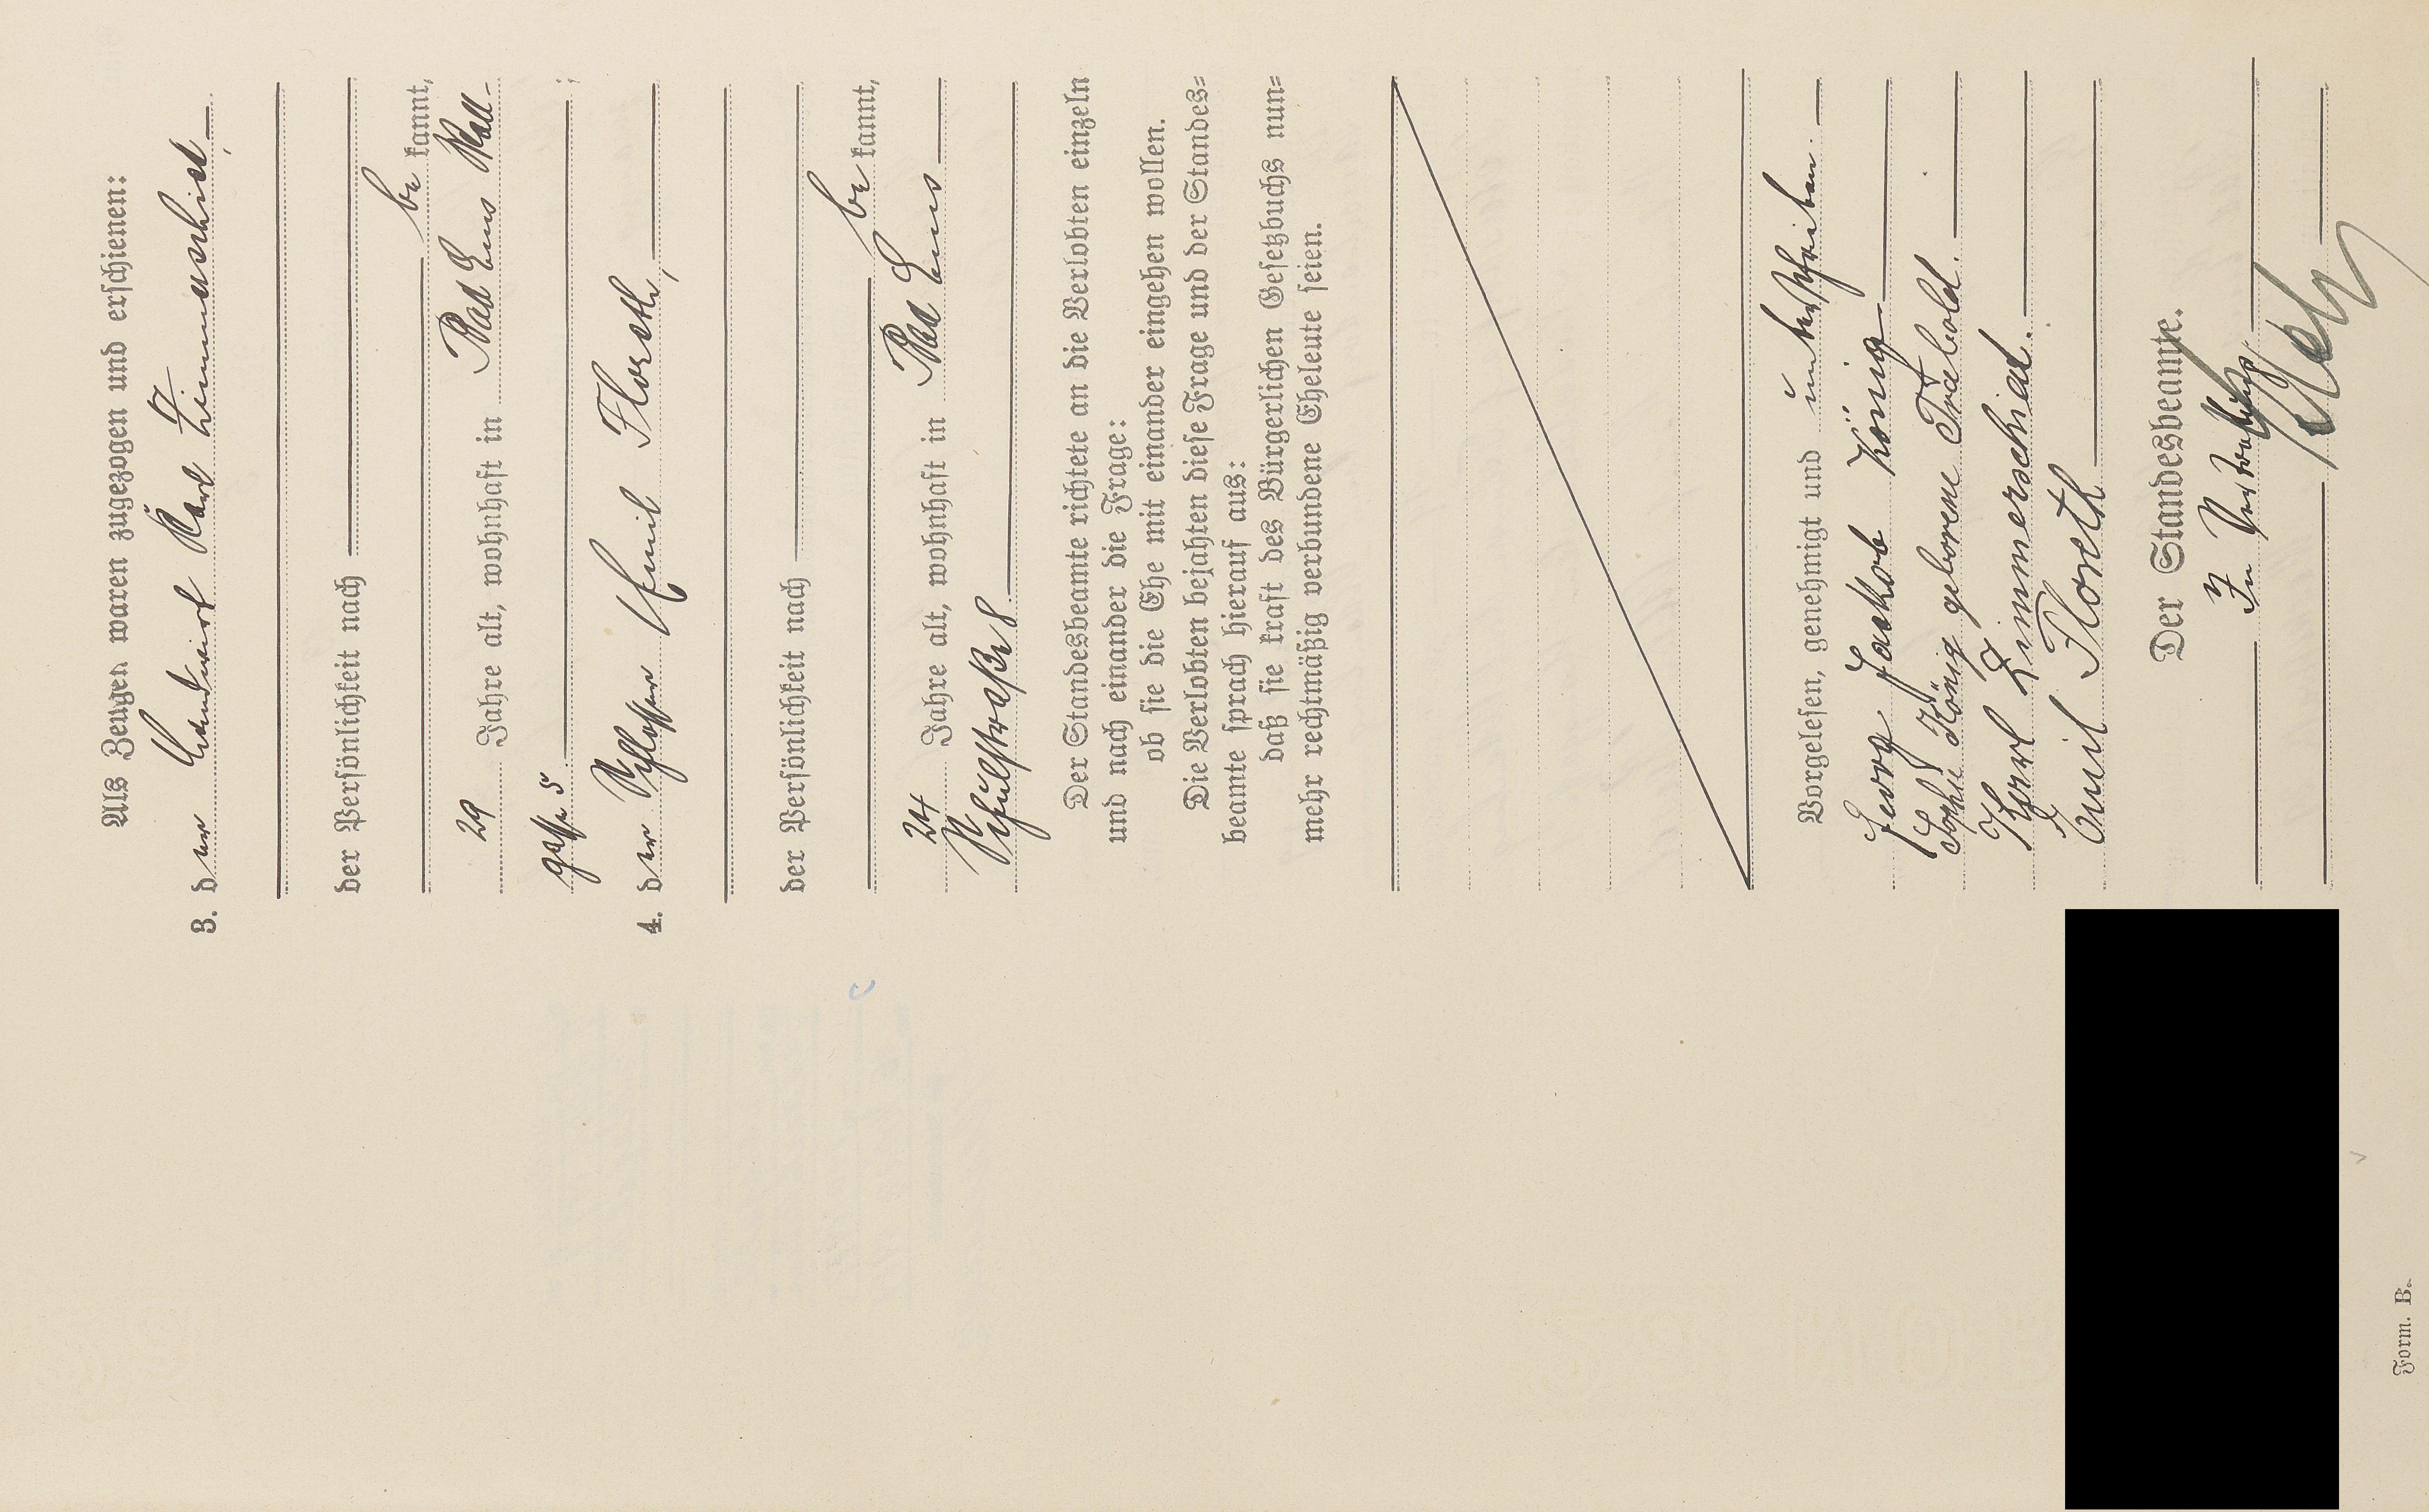 Als Zeugen waren zugezogen und erschienen:
3. der Landwirt Karl Zimmerschied,
der Persönlichkeit nach
be kannt,
29 Jahre alt, wohnhaft in Bad Ems Wall-
gasse 5 ;
4. der Schlosser Emil Floreth,
der Persönlichkeit nach
be kannt,
24 Jahre alt, wohnhaft in Bad Ems
Schulstraße 8.
Der Standesbeamte richtete an die Verlobten einzeln
und nach einander die Frage:
ob sie die Ehe mit einander eingehen wollen.
Die Verlobten bejahten diese Frage und der Standes=
beamte sprach hierauf aus:
daß sie kraft des Bürgerlichen Gesetzbuchs nun=
mehr rechtmäßig verbundene Eheleute seien.
Vorgelesen, genehmigt und unterschrieben.
Georg Jakob König
Sophie König geborene Trabold.
Karl Zimmerschied.
Emil Floreth
Der Standesbeamte.
In Vertretung
Form. B.